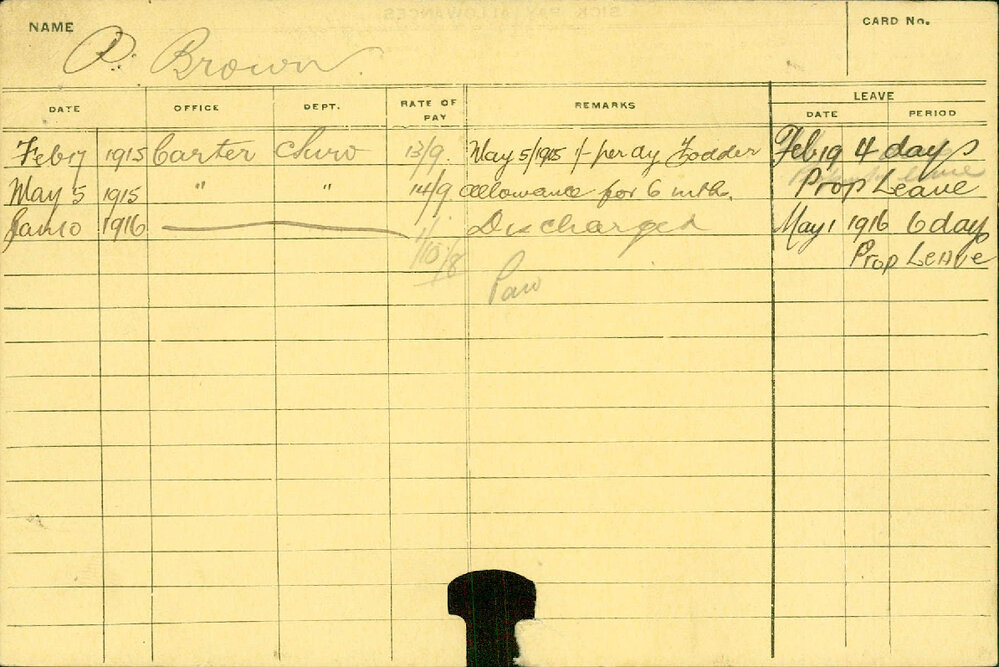 NAME
CARD No.
Brown.
DATE OFFICE DEPT. RATE OF PAY REMARKS LEAVE
DATE PERIOD
Feb 17 1915 Carter 13/9. May 5/1915 1/- per dy Fodder Feb 19 4 days
May 5 1915 " " 14/9 allowance for 6 mth. Prop Leave
Jan 10 1916 Discharged May 1 1916 6 days
Prop Leave